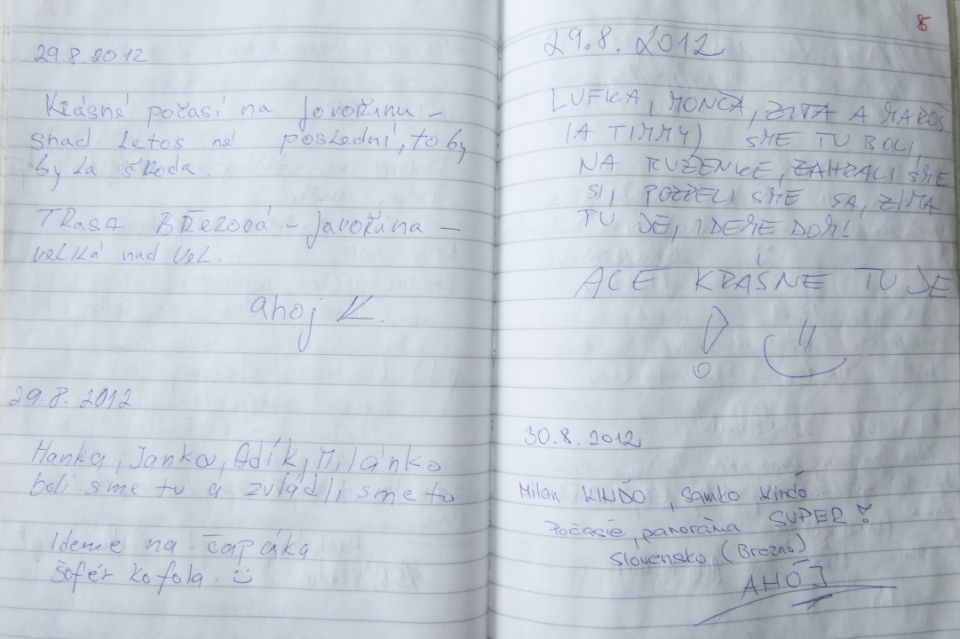 29.8.2012
Krásné počasí na Javořinu –
snad letos né poslední, to by
byla škoda.
TRASA BŘEZOVÁ – Javořina –
velká nad Vel.
ahoj K.
29.8.2012
Hanka, Janka, Adík, Milánko
boli sme tu a zvládli sme to
Ideme na čapáka
šofér kofola.
8
29.8.2012
LUFKA, MONČA, ZITA A MAROŠ
(A TIMMY) SME TU BOLI,
NA RUŽENKE, ZAHRALI SME
SI, POZRELI SME SA, ZIMA
TU JE, IDEME DOM!
ALE KRÁSNE TU JE
!
30.8.2012
Milan KINĎO, Samko Kinďo.
Počasie, panoráma SUPER!
Slovensko (Brezno)
AHOJ